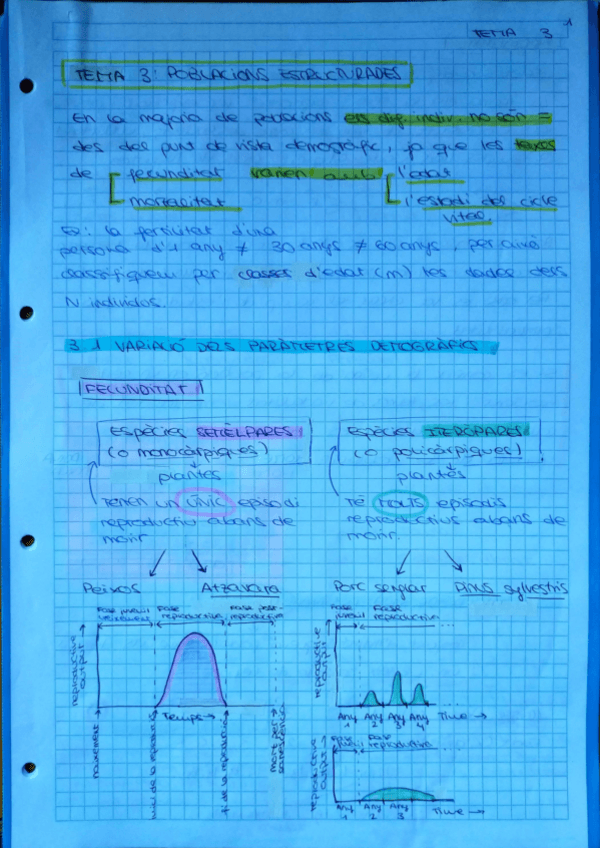 TEMA 3 1
TEMA 3: POBLACIONS ESTRUCTURADES
En la majoria de poblacions els dif. indiv. no són =
des del punt de vista demogràfic, ja que les taxes
de fecunditat varien amb l'edat
mortalitat l'estadi del cicle
vital.
Ex: la fertilitat d'una
persona d'1 any ≠ 30 anys ≠ 60 anys, per això
classifiquem per classes d'edat (m) les dades dels
N individus.
3.1 VARIACIÓ DELS PARÀMETRES DEMOGRÀFICS
FECUNDITAT
Espècies SEMÈLPARES
(o monocàrpiques)
plantes
Tenen un ÚNIC episodi
reproductiu abans de
morir
Peixos Atzavara
Espècies ITERÒPARES
(o policàrpiques)
plantes
Té MOLTS episodis
reproductius abans de
morir.
Porc senglar Pinus sylvestris
Fase juvenil Fase reproductiva Fase post-reproductiva
reproductive output
Temps →
naixement
inici de la reproducció
fi de la reproducció
mort per senescència
Fase juvenil Fase reproductiva
reproductive output
Any 1 Any 2 Any 3 Any 4 Time →
Fase juvenil Fase reproductiva
reproductive output
Any 1 Any 2 Any 3 Time →